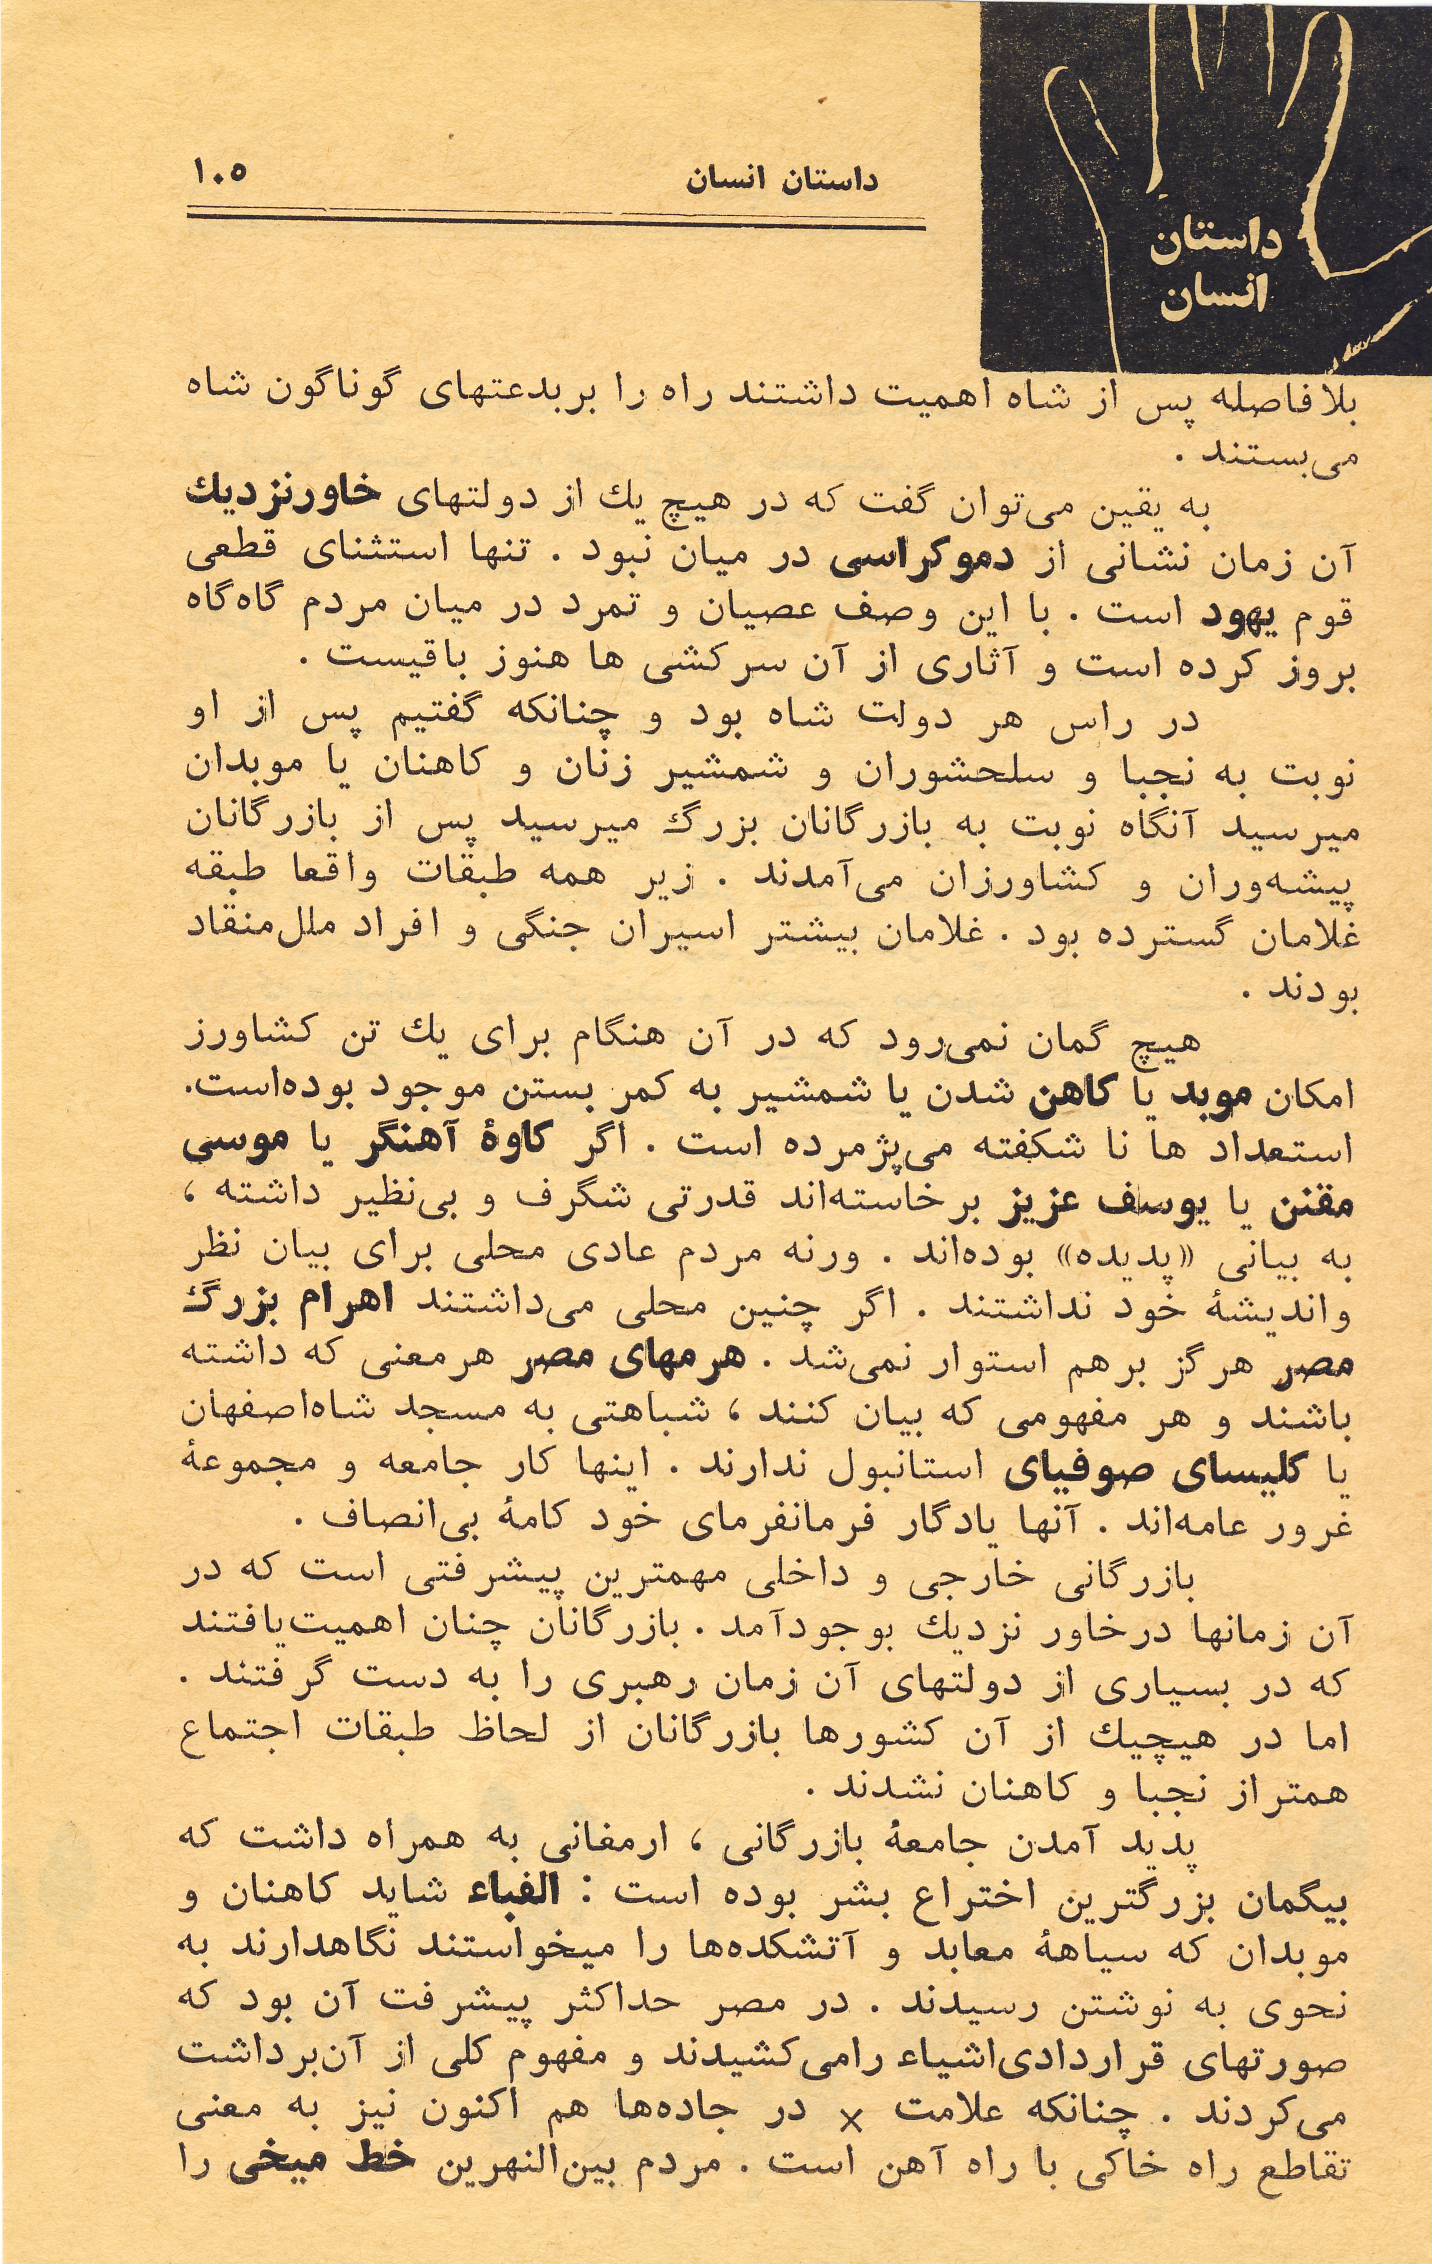 داستان انسان
۱۰۵
داستان
انسان
بلافاصله پس از شاه اهمیت داشتند راه را بربدعتهای گوناگون شاه
می‌بستند .
به یقین می‌توان گفت که در هیچ یك از دولتهای خاورنزدیك
آن زمان نشانی از دموکراسی در میان نبود . تنها استثنای قطعی
قوم یهود است . با این وصف عصیان و تمرد در میان مردم گاه‌گاه
بروز کرده است و آثاری از آن سرکشی ها هنوز باقیست .
در راس هر دولت شاه بود و چنانکه گفتیم پس از او
نوبت به نجبا و سلحشوران و شمشیر زنان و کاهنان یا موبدان
میرسید آنگاه نوبت به بازرگانان بزرگ میرسید پس از بازرگانان
پیشه‌وران و کشاورزان می‌آمدند . زیر همه طبقات واقعا طبقه
غلامان گسترده بود . غلامان بیشتر اسیران جنگی و افراد ملل‌منقاد
بودند .
هیچ گمان نمی‌رود که در آن هنگام برای یك تن کشاورز
امکان موبد یا کاهن شدن یا شمشیر به کمر بستن موجود بوده‌است.
استعداد ها نا شکفته می‌پژمرده است . اگر کاوهٔ آهنگر یا موسی
مقنن یا یوسف عزیز برخاسته‌اند قدرتی شگرف و بی‌نظیر داشته ،
به بیانی «پدیده» بوده‌اند . ورنه مردم عادی محلی برای بیان نظر
واندیشهٔ خود نداشتند . اگر چنین محلی می‌داشتند اهرام بزرگ
مصر هرگز برهم استوار نمی‌شد . هرمهای مصر هرمعنی که داشته
باشند و هر مفهومی که بیان کنند ، شباهتی به مسجد شاه‌اصفهان
یا کلیسای صوفیای استانبول ندارند . اینها کار جامعه و مجموعهٔ
غرور عامه‌اند . آنها یادگار فرمانفرمای خود کامهٔ بی‌انصاف .
بازرگانی خارجی و داخلی مهمترین پیشرفتی است که در
آن زمانها درخاور نزدیك بوجودآمد . بازرگانان چنان اهمیت‌یافتند
که در بسیاری از دولتهای آن زمان رهبری را به دست گرفتند .
اما در هیچیك از آن کشورها بازرگانان از لحاظ طبقات اجتماع
همتراز نجبا و کاهنان نشدند .
پدید آمدن جامعهٔ بازرگانی ، ارمغانی به همراه داشت که
بیگمان بزرگترین اختراع بشر بوده است : الفباء شاید کاهنان و
موبدان که سیاههٔ معابد و آتشکده‌ها را میخواستند نگاهدارند به
نحوی به نوشتن رسیدند . در مصر حداکثر پیشرفت آن بود که
صورتهای قراردادی‌اشیاء رامی‌کشیدند و مفهوم کلی از آن‌برداشت
می‌کردند . چنانکه علامت × در جاده‌ها هم اکنون نیز به معنی
تقاطع راه خاکی با راه آهن است . مردم بین‌النهرین خط میخی را